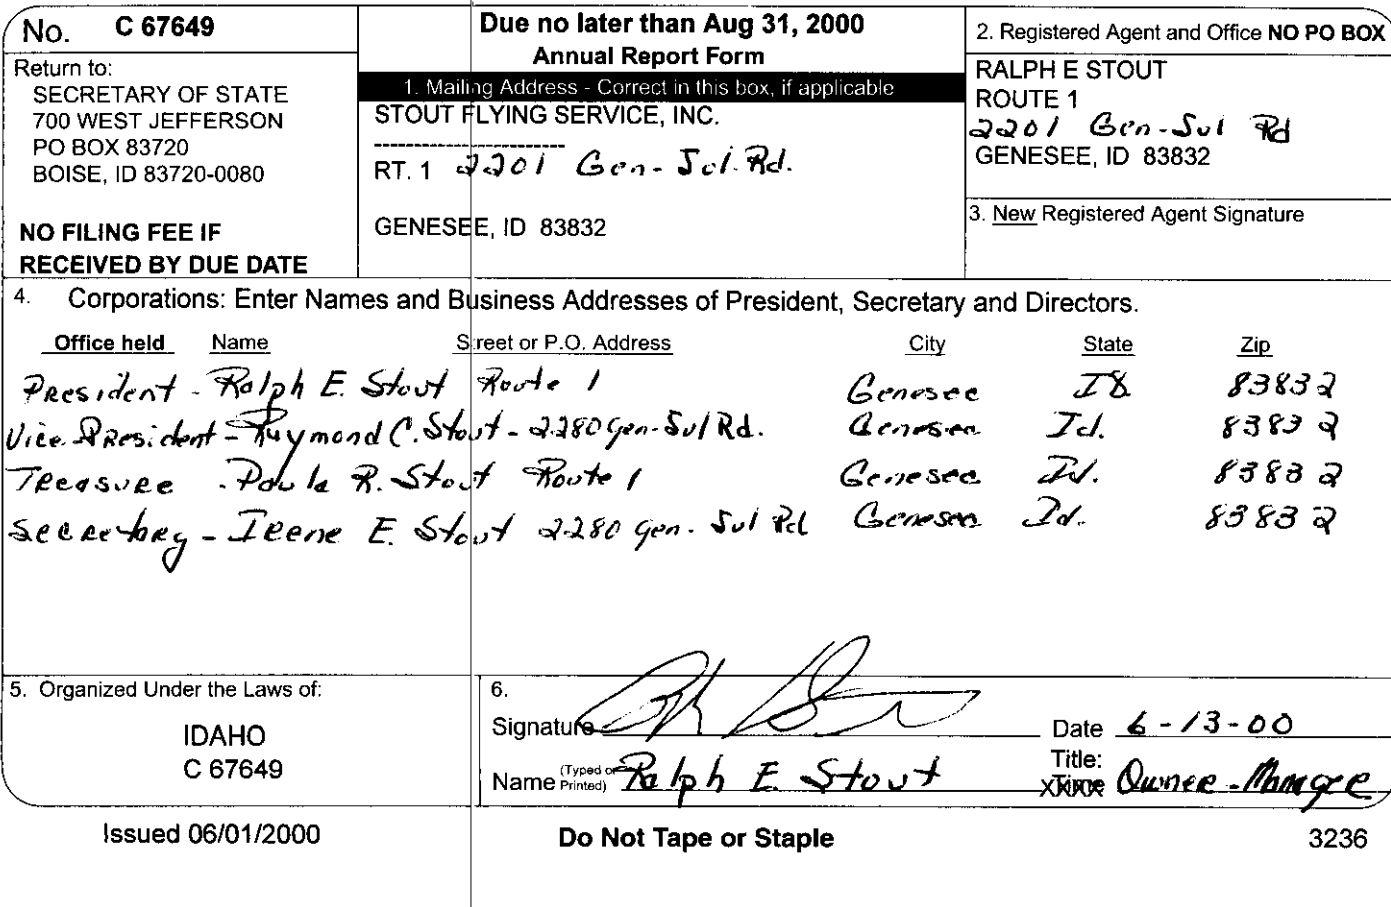 No. C 67649
Return to:
SECRETARY OF STATE
700 WEST JEFFERSON
PO BOX 83720
BOISE, ID 83720-0080
NO FILING FEE IF
RECEIVED BY DUE DATE
Due no later than Aug 31, 2000
Annual Report Form
1. Mailing Address - Correct in this box, if applicable
STOUT FLYING SERVICE, INC.
RT. 1 2201 Gen-Jul. Rd.
GENESEE, ID 83832
2. Registered Agent and Office NO PO BOX
RALPH E STOUT
ROUTE 1
2201 Gen-Jul Rd
GENESEE, ID 83832
3. New Registered Agent Signature
4. Corporations: Enter Names and Business Addresses of President, Secretary and Directors.
Office held Name Street or P.O. Address City State Zip
President - Ralph E. Stout Route 1 Genesee Id. 83832
Vice President - Raymond C. Stout - 2280 Gen-Jul Rd. Genesee Id. 83832
Treasure - Paula R. Stout Route 1 Genesee Id. 83832
Secretary - Irene E. Stout 2280 Gen. Jul Rd Genesee Id. 83832
5. Organized Under the Laws of:
IDAHO
C 67649
6.
Signature Date 6-13-00
Name (Typed or Printed) Ralph E. Stout Title: Owner-Manger
Issued 06/01/2000 Do Not Tape or Staple 3236